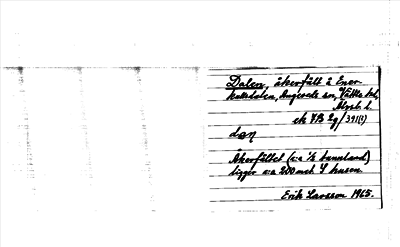 Dalen, åkerfält å Ener-
kullstalen, Angereds sn, Vättle hd,
Älvsb. l.
ek VB 2g/391(1)
dan
Åkerfältet (c:a ½ tunnland)
ligger c:a 200 met. S husen.
Erik Larsson 1965.